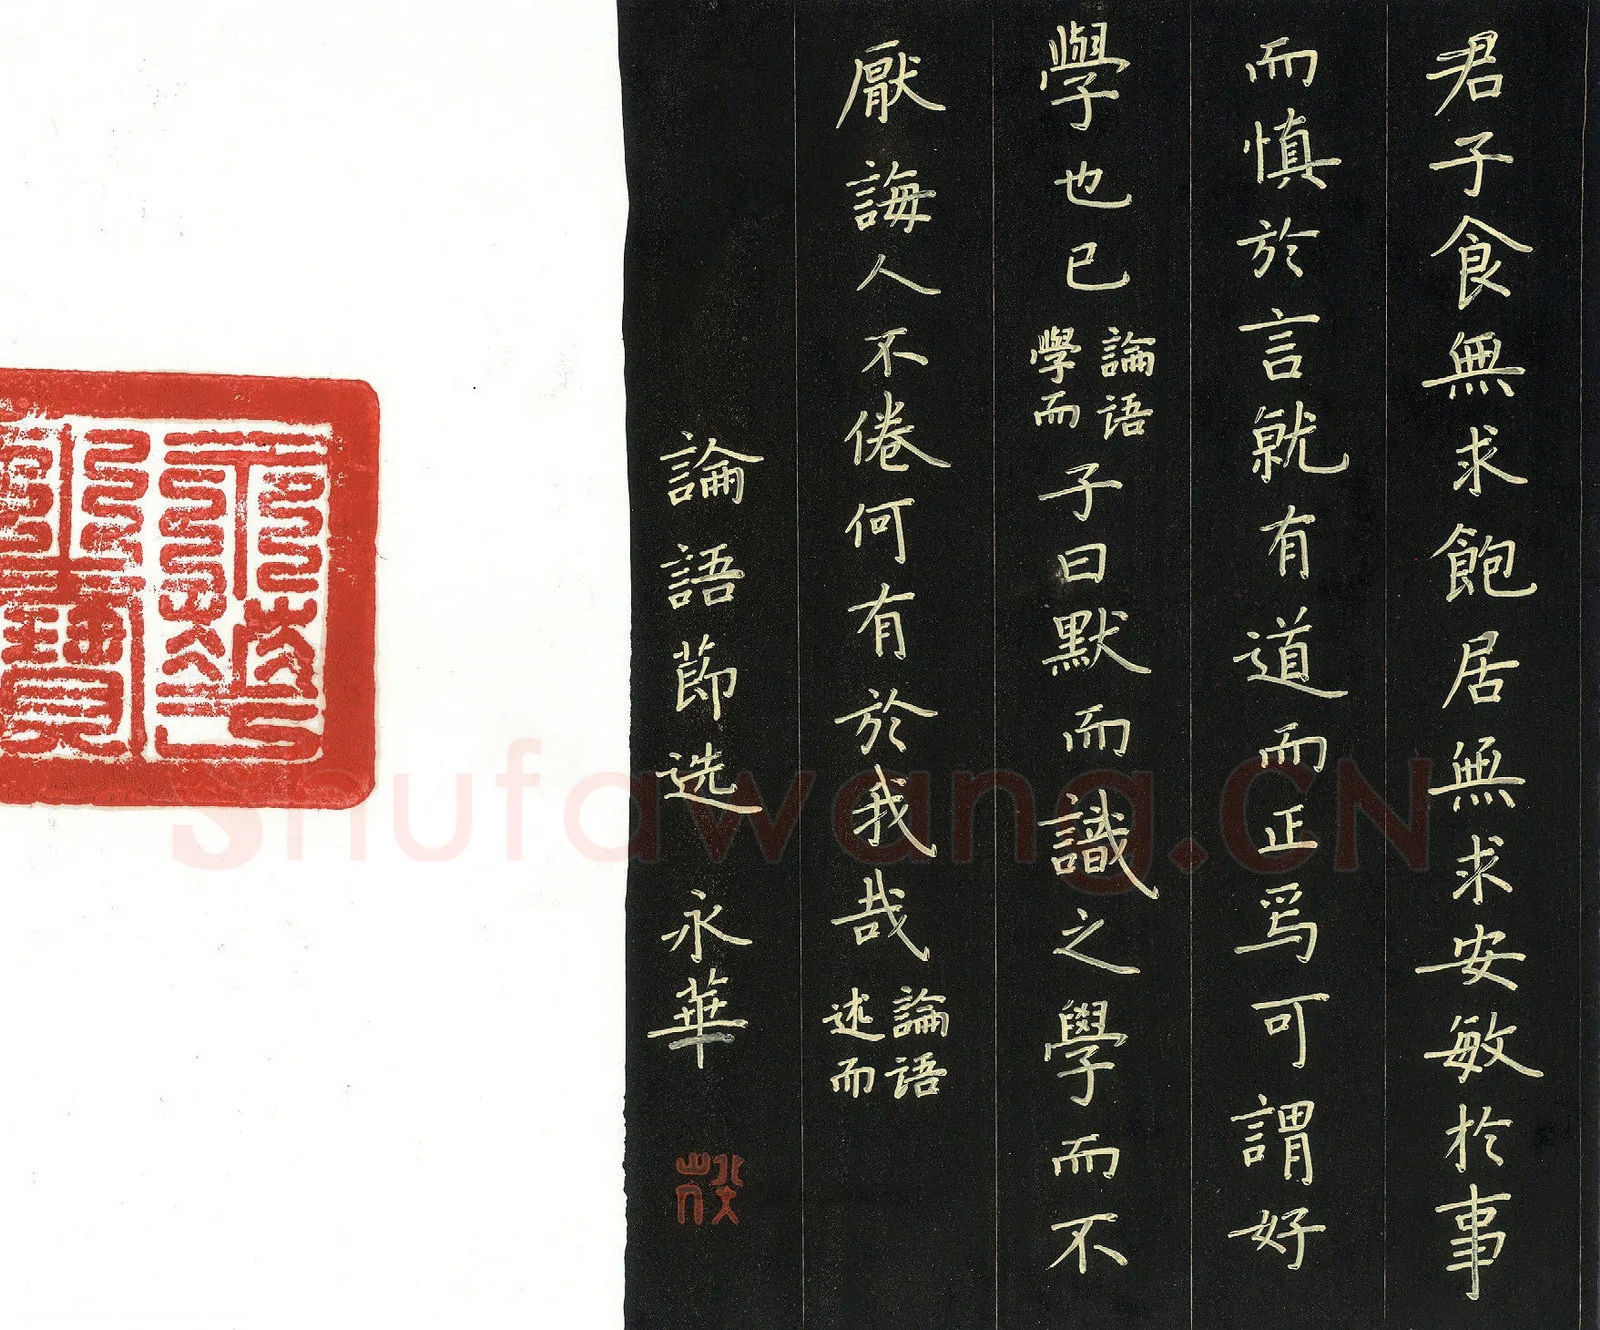 君子食無求飽居無求安敏於事
而慎於言就有道而正焉可謂好
學也已論語學而子曰默而識之學而不
厭誨人不倦何有於我哉論語述而
論語節选 永華
Shufawang.CN